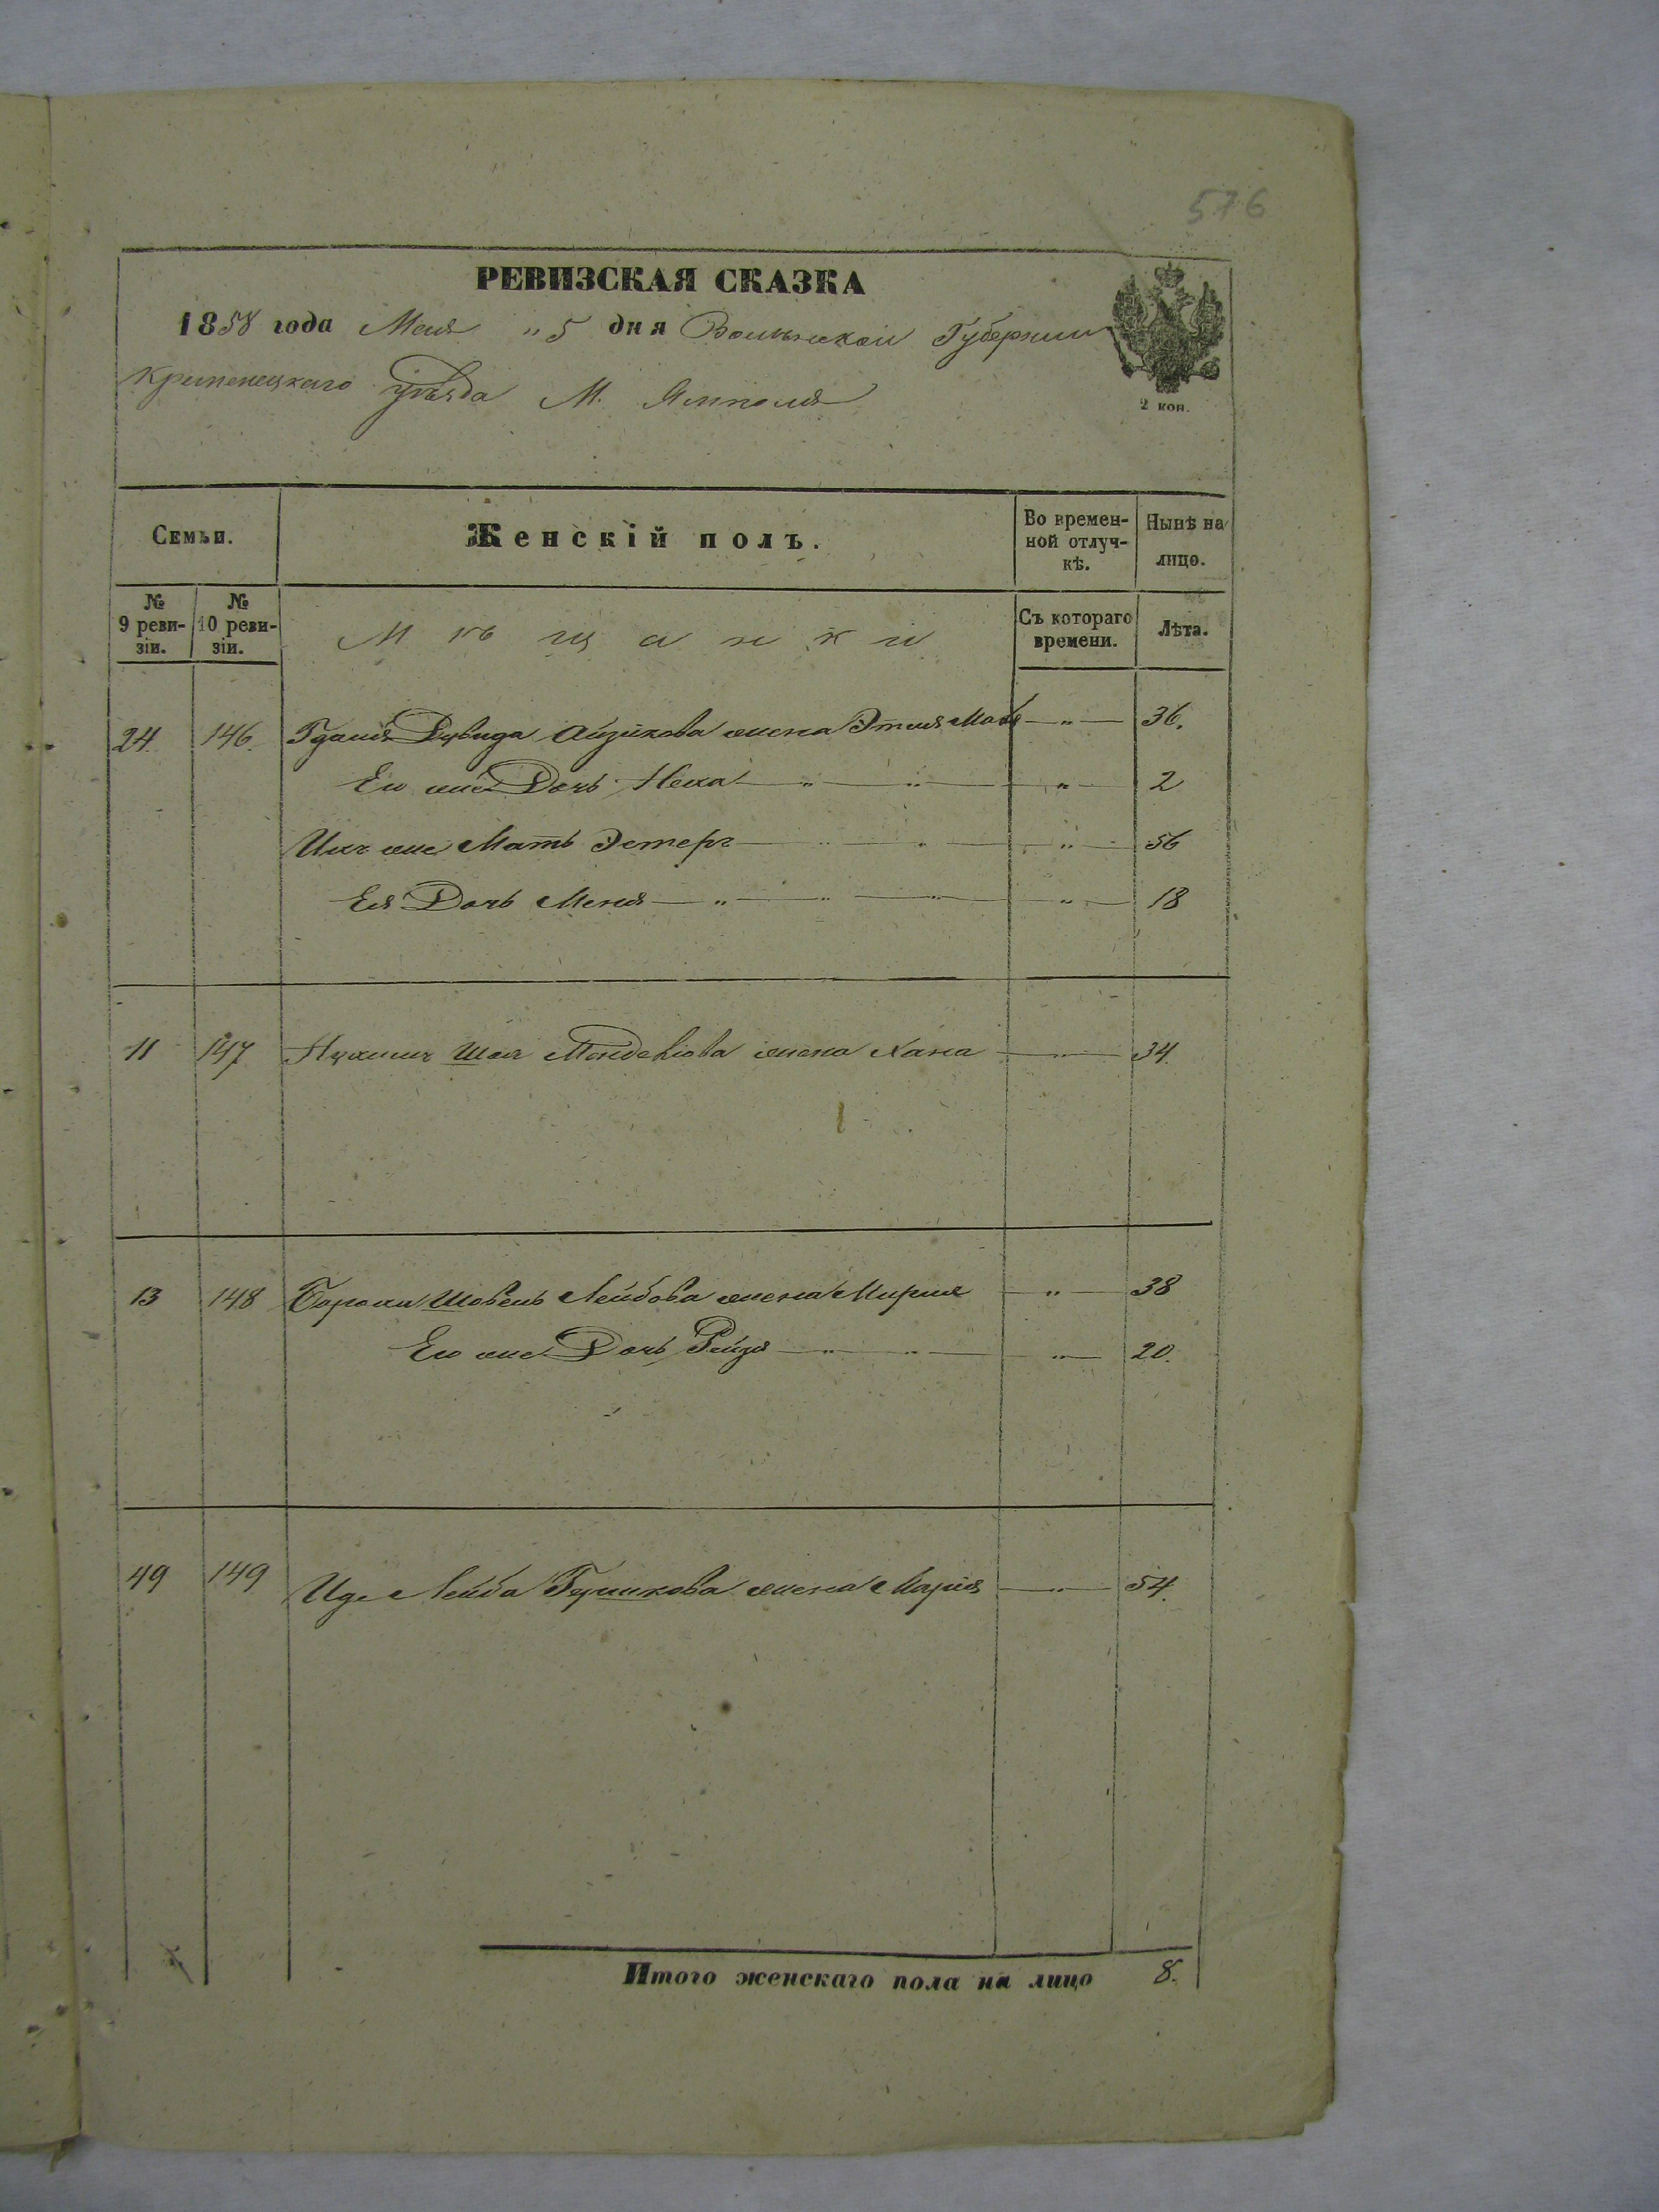 576
РЕВИЗСКАЯ СКАЗКА
1858 года Мая „ 5 дня Волынской Губернии
Кременецкаго уѣзда М. Ямполя
2 коп.
Семьи.
Женскій полъ.
Во времен-
ной отлуч-
кѣ.
Нынѣ на
лицо.
№
9 реви-
зіи.
№
10 реви-
зіи.
Мѣщанки
Съ котораго
времени.
Лѣта.
24. 146. Дувида Айзикова жена Этля — „ — 36.
Ею же Дочь Неха — „ — „ — „ — 2
Ихъ же Мать Эстеръ — „ — „ — „ — 56
Ея Дочь Меня — „ — „ — „ — „ — 18
11 147 Мендевіова жена Хана — „ — 34.
13 148 Лейбова жена Мирля — „ — 38
Ею же Дочь Рейзя — „ — „ — „ — 20.
49 149 Лейба жена Марія — „ — 54.
Итого женскаго пола на лицо 8.